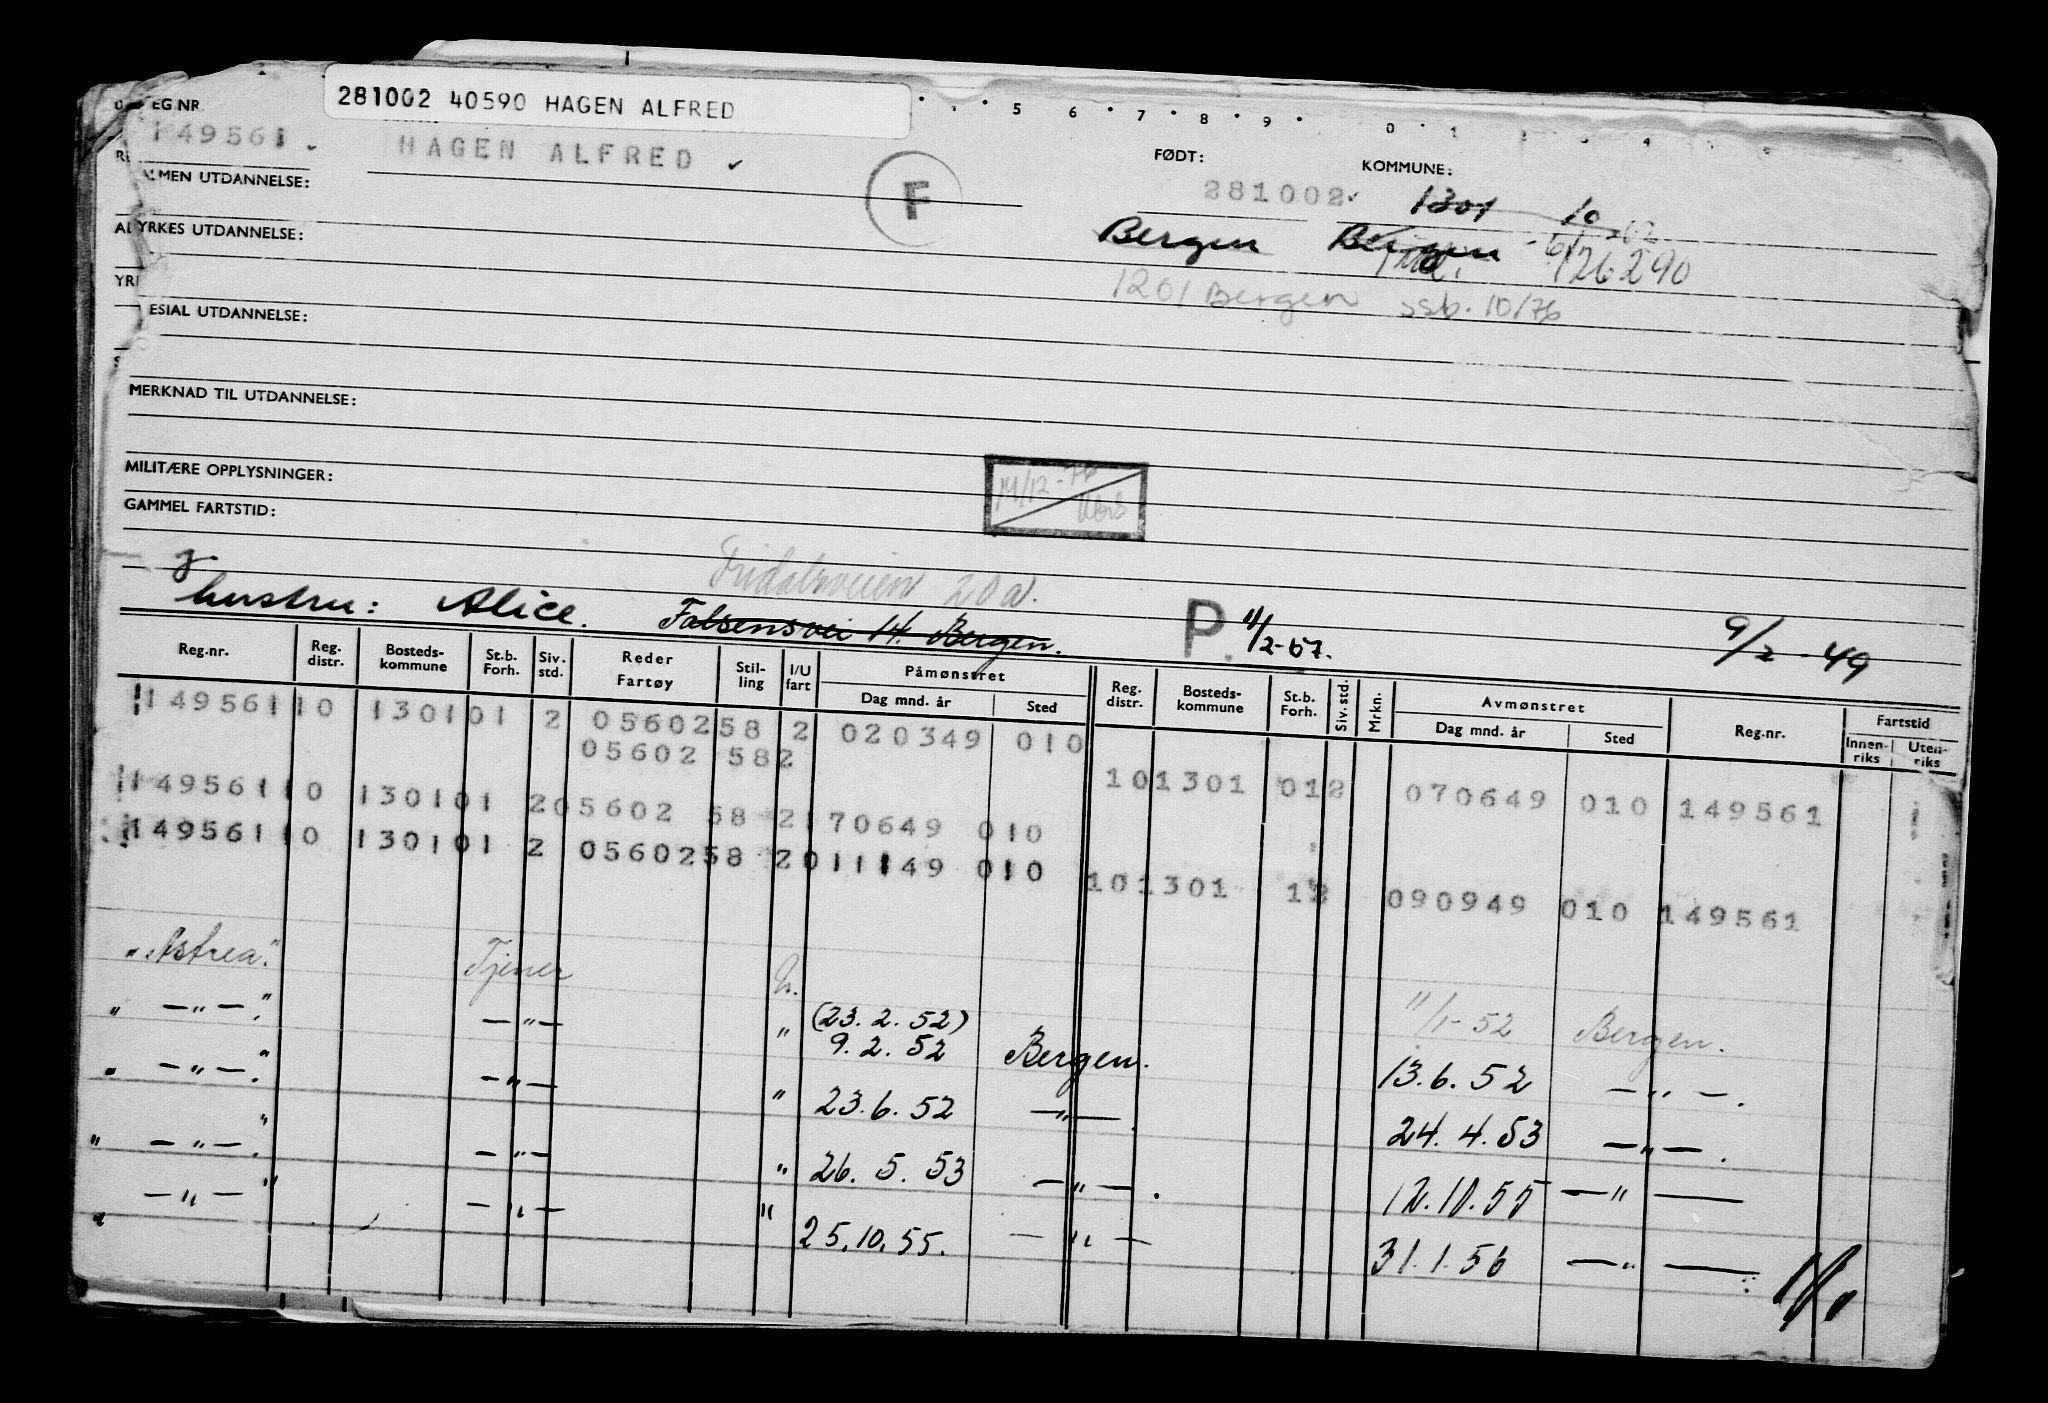 281002 40590 HAGEN ALFRED
EG.NR. 5 6 · 7 · 8 · 9 · 0 · 1 2 3 4
149561 HAGEN ALFRED FØDT: KOMMUNE:
LMEN UTDANNELSE: F 281002 1301 10
YRKES UTDANNELSE: Bergen Bergen 126290
1201 Bergen ssb. 10/76
ESIAL UTDANNELSE:
MERKNAD TIL UTDANNELSE:
MILITÆRE OPPLYSNINGER:
GAMMEL FARTSTID:
Fridalsveien 20a.
hustru: Alice. Falsensvei 14. Bergen. P. 11/2-57. 9/2-49
Reg.nr. Reg. distr. Bosteds-kommune St.b. Forh. Siv. std. Reder Fartøy Stil-ling I/U fart Påmønstret Reg. distr. Bosteds-kommune St.b. Forh. Siv. std. Mrkn. Avmønstret Reg.nr. Fartstid
Dag mnd. år Sted Dag mnd. år Sted Innen-riks Uten-riks
149561 10 1301 01 2 05602 58 2 020349 010
05602 58 2
10 1301 01 2 070649 010 149561
149561 10 1301 01 2 05602 58 2 170649 010
149561 10 1301 01 2 05602 58 2 011149 010
10 1301 1 090949 010 149561
"Astrea". Tjener 11/1-52 Bergen.
" — " — ." — " — " (23.2.52)
9.2.52 Bergen. 13.6.52 — " — .
" — " — ." — " — " 23.6.52 — " — . 24.4.53 — " — .
" — " — ." — " — " 26.5.53 — " — . 12.10.55 — " —
" — " — " — " — " 25.10.55. — " — 31.1.56 — " —